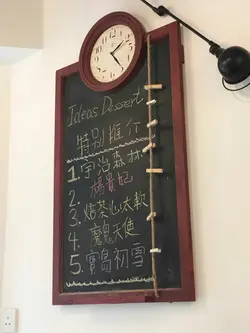 Ideas Dessert
特別推介
1. 宇治森林
2. 楊貴妃
3. 焙茶心太軟
4. 魔鬼天使
5. 寶島初雪